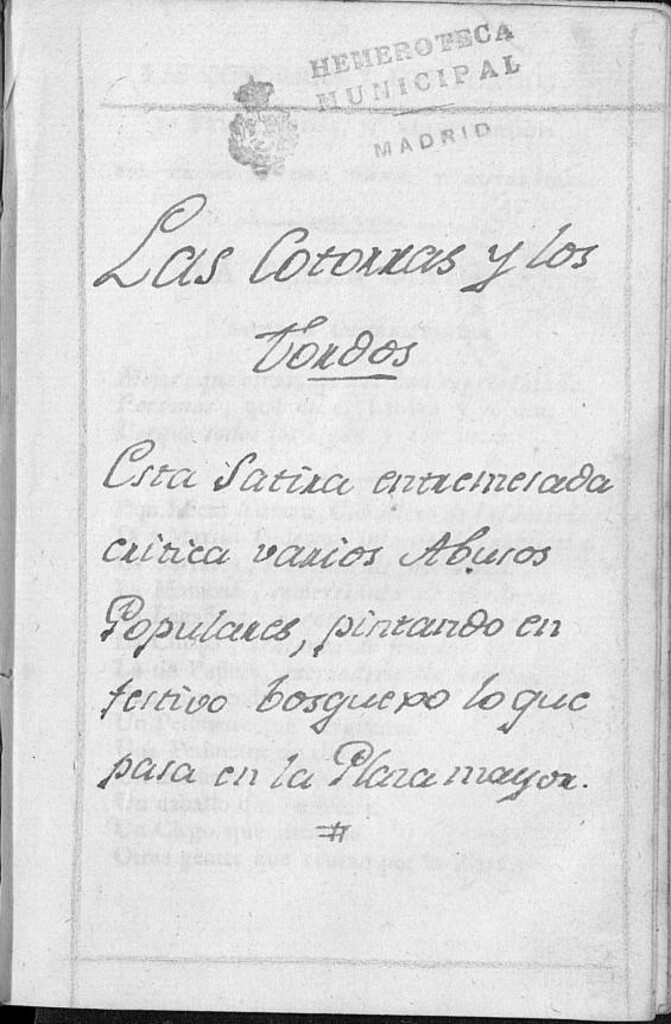 HEMEROTECA
MUNICIPAL
MADRID
Las Cotorras y los
Tordos
Esta Satira entremesada
critica varios Abusos
Populares, pintando en
festivo bosquexo lo que
pasa en la Plaza mayor.
#